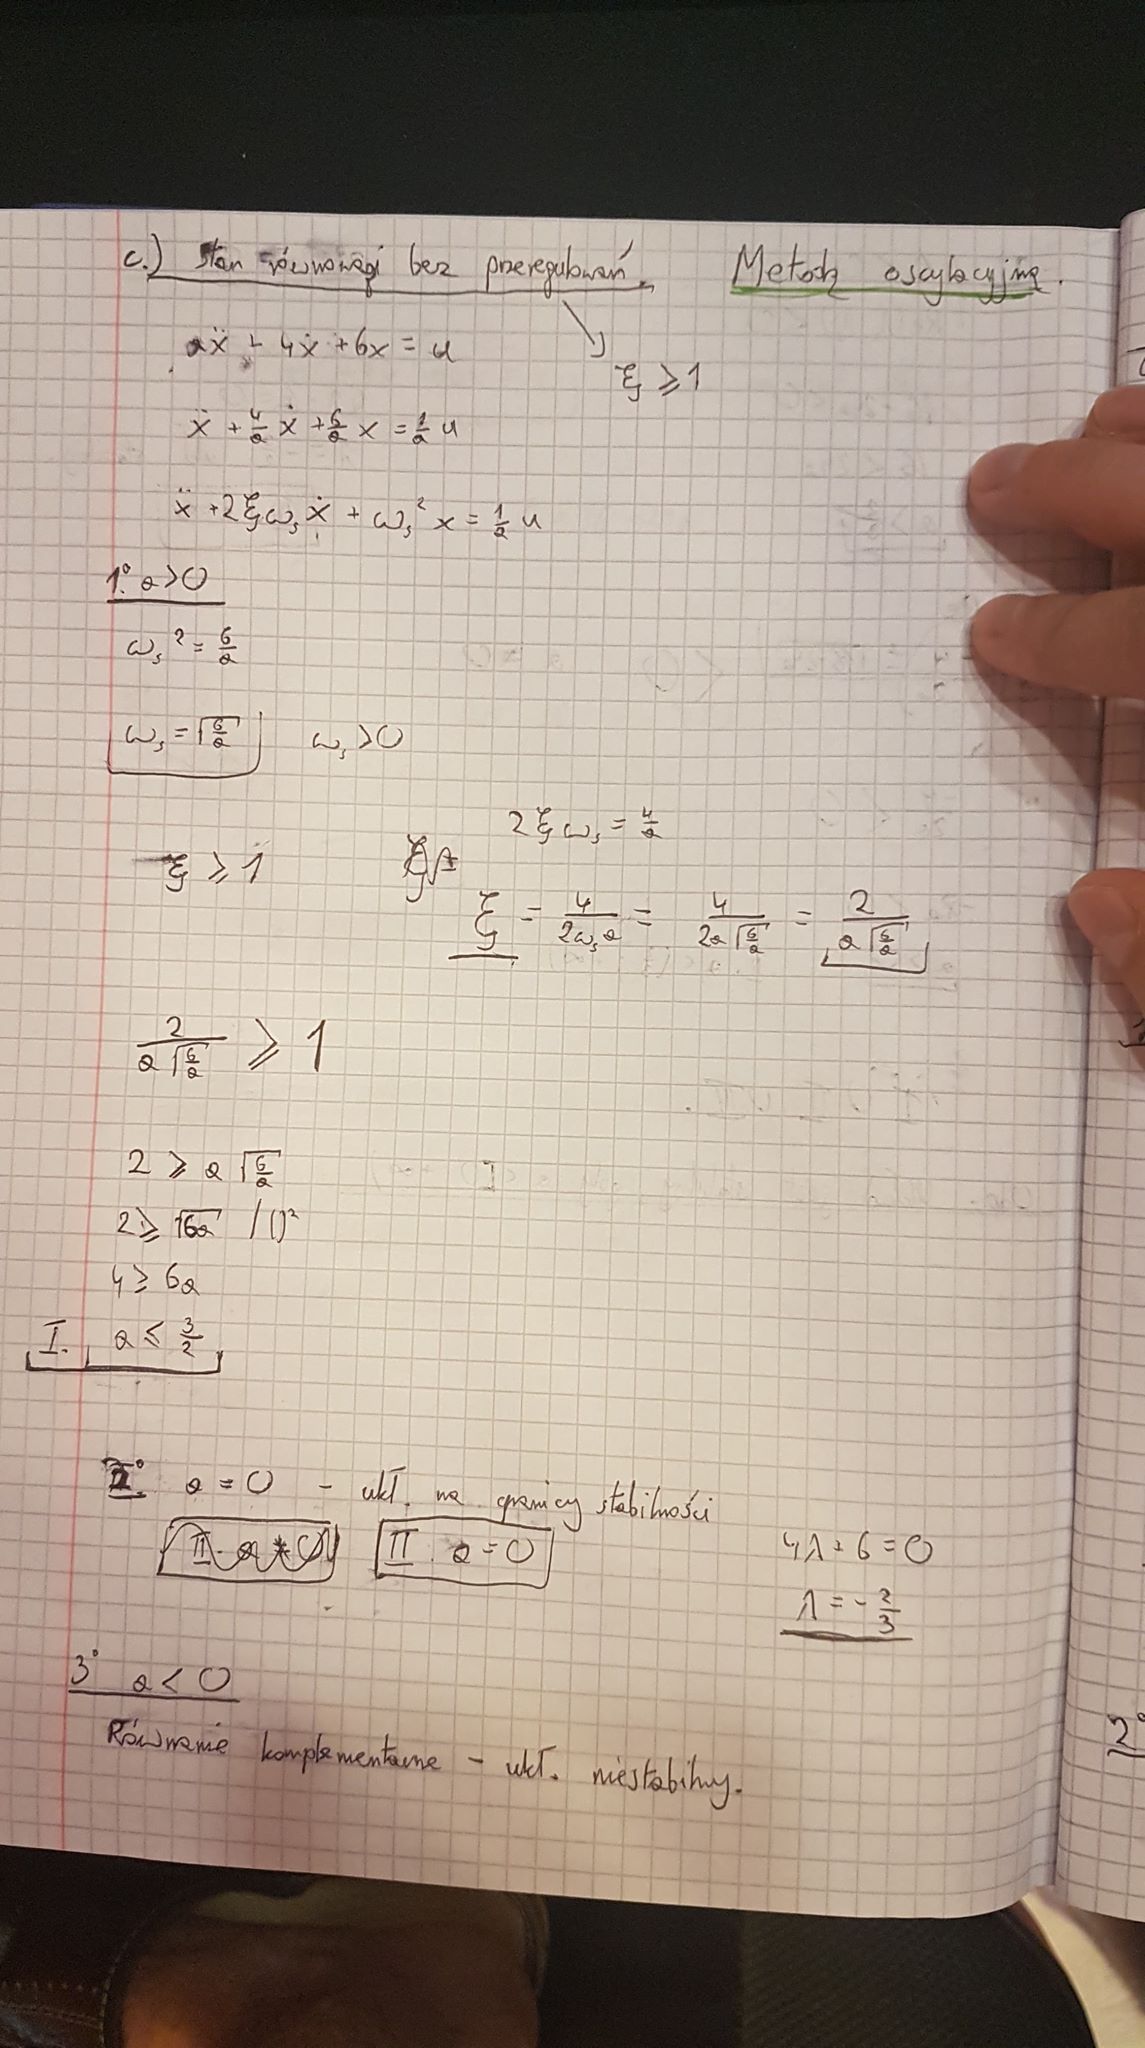 c.) stan równowagi bez przeregulowań. Metodą oscylacyjną.
aẍ + 4ẋ + 6x = u
ξ ⩾ 1
ẍ + 4/a ẋ + 6/a x = 1/a u
ẍ + 2ξω_s ẋ + ω_s² x = 1/a u
1° a > 0
ω_s² = 6/a
ω_s = √(6/a) ω_s > 0
2ξω_s = 4/a
ξ ⩾ 1
ξ = 4/(2ω_s a) = 4/(2a√(6/a)) = 2/(a√(6/a))
2/(a√(6/a)) ⩾ 1
2 ⩾ a√(6/a)
2 ⩾ √(6a) /()²
4 ⩾ 6a
I. a ⩽ 3/2
2° a = 0 - ukł. na granicy stabilności
II. a = 0
4λ + 6 = 0
λ = - 2/3
3° a < 0
Równanie komplementarne - ukł. niestabilny.
2°